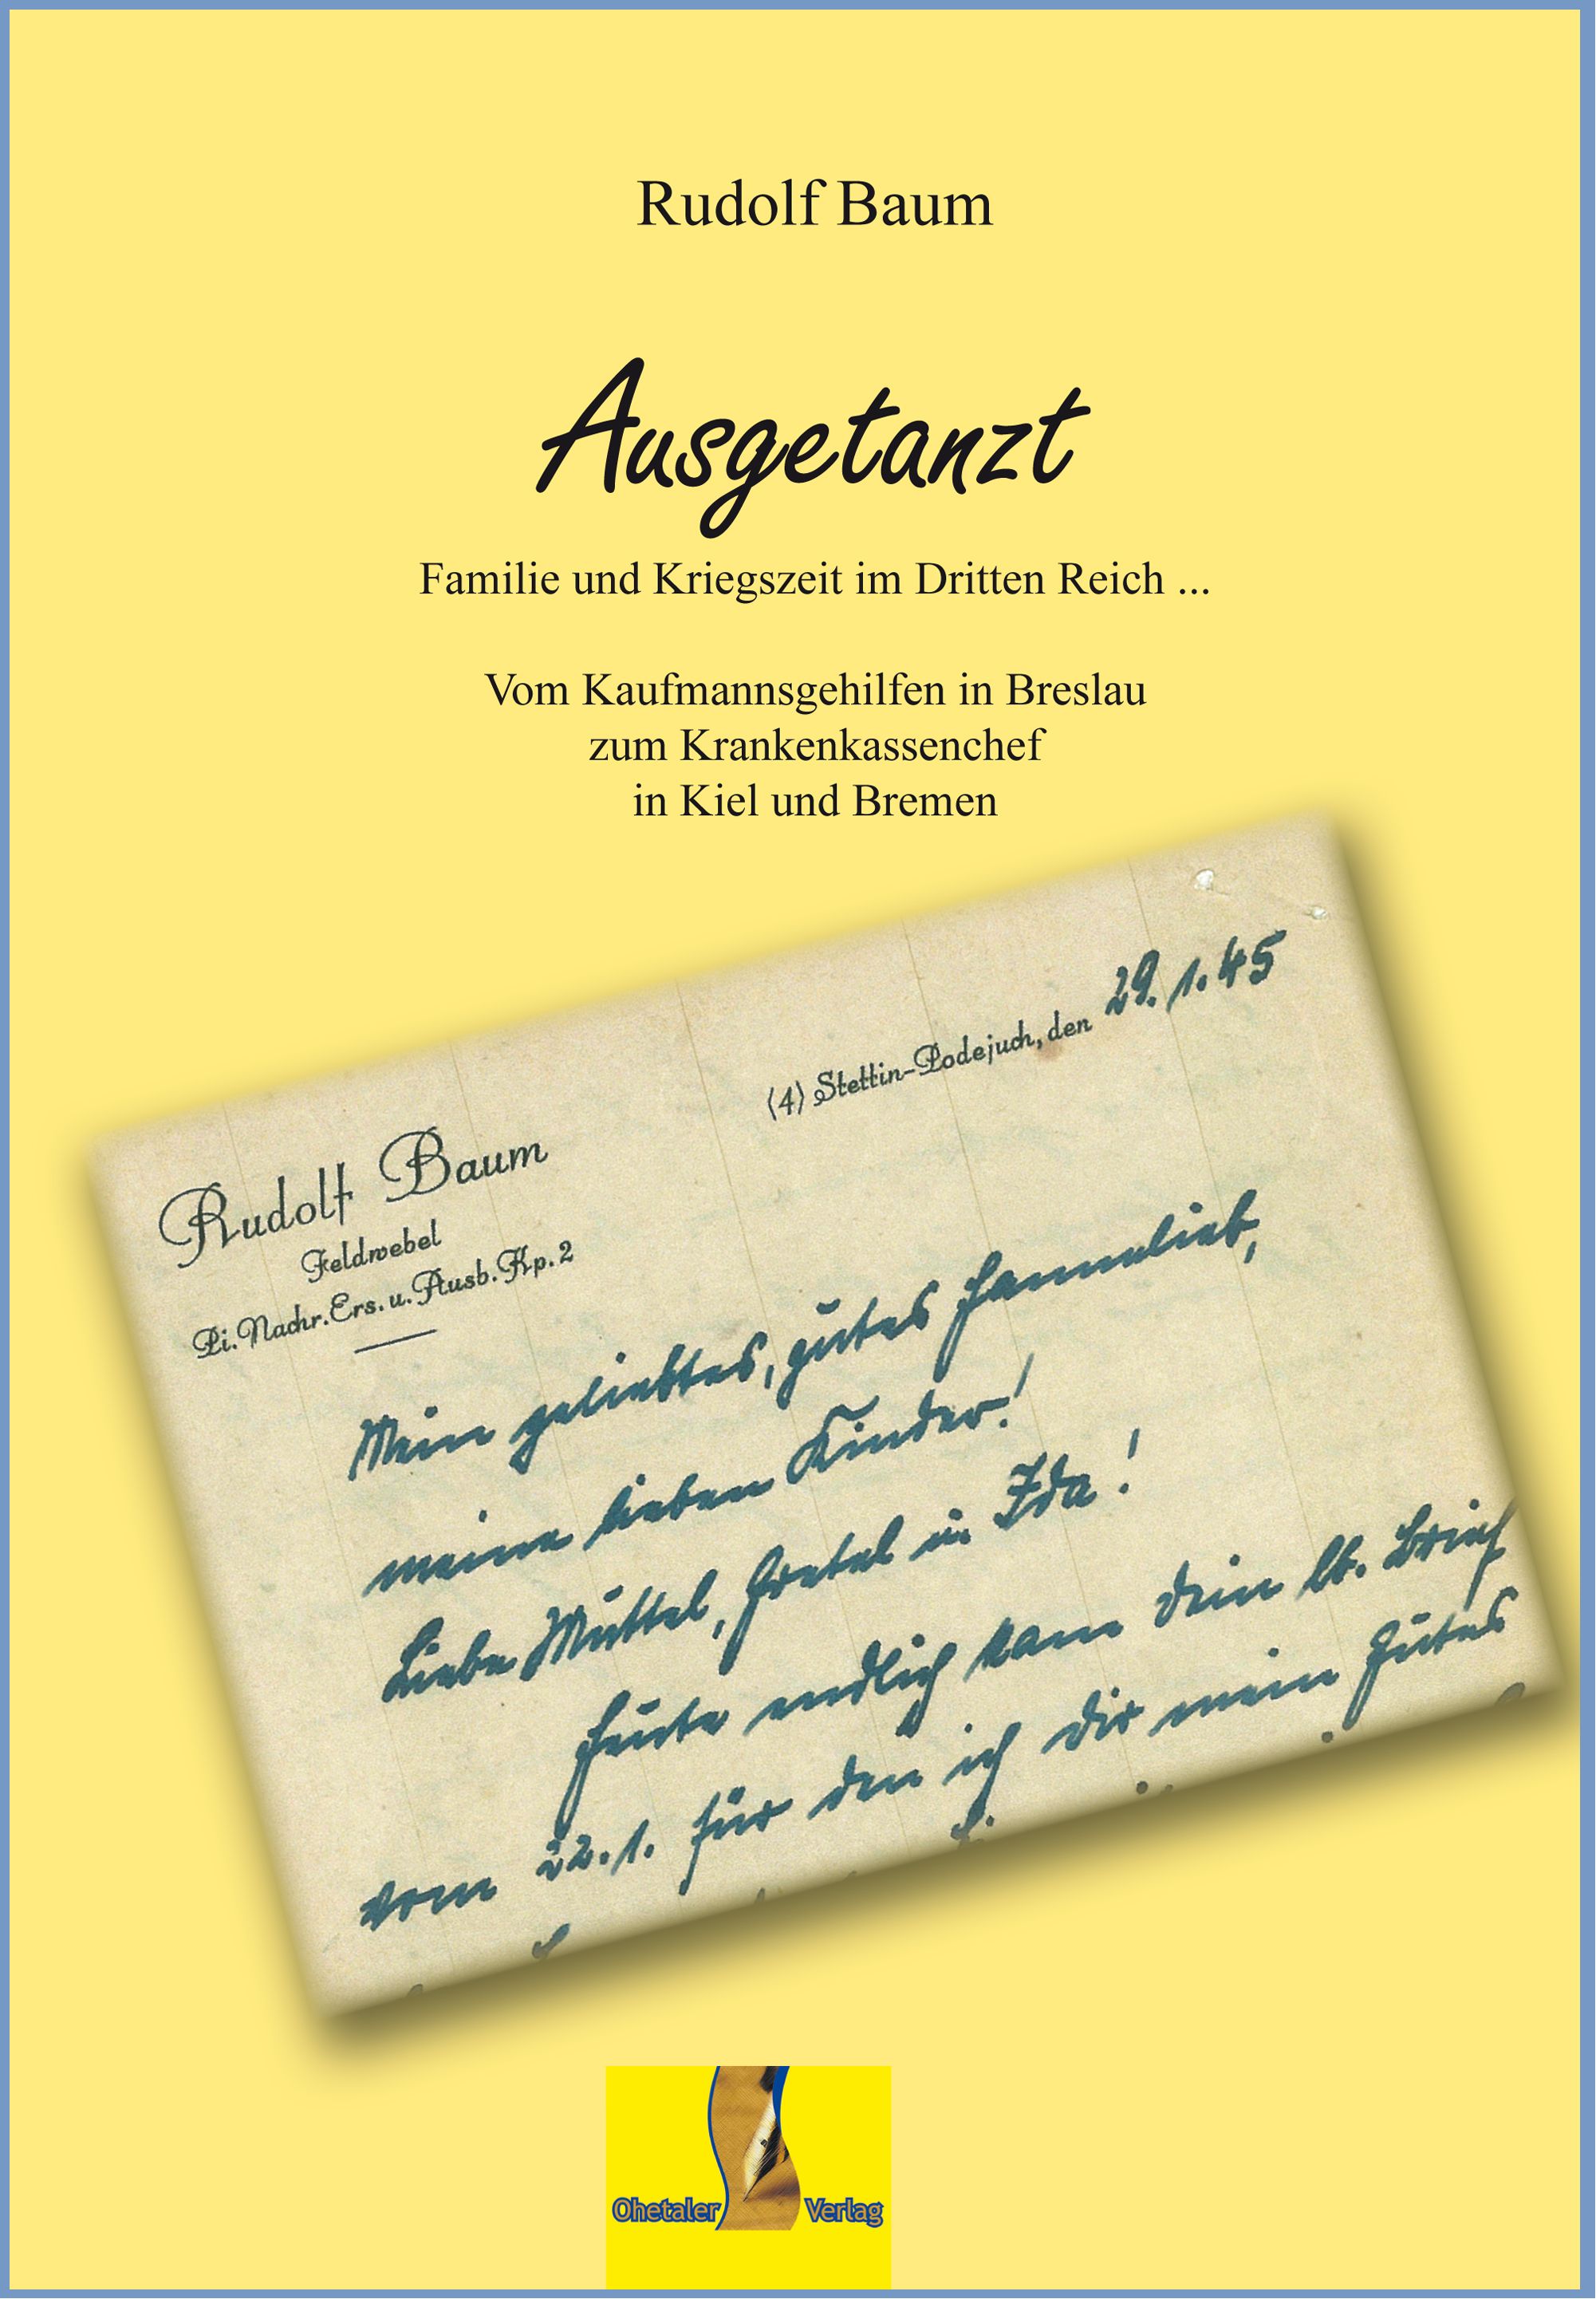 Rudolf Baum
Ausgetanzt
Familie und Kriegszeit im Dritten Reich ...
Vom Kaufmannsgehilfen in Breslau
zum Krankenkassenchef
in Kiel und Bremen
(4) Stettin-Podejuch, den 29.1.45
Rudolf Baum
Feldwebel
Pi. Nachr. Ers. u. Ausb. Kp. 2
Mein geliebtes, gutes Hannelieb,
meine lieben Kinder!
Liebe Muttel, Gretel u. Ida!
Heute endlich kam Dein lb. Brief
vom 22.1. für den ich Dir mein Gutes
Ohetaler Verlag